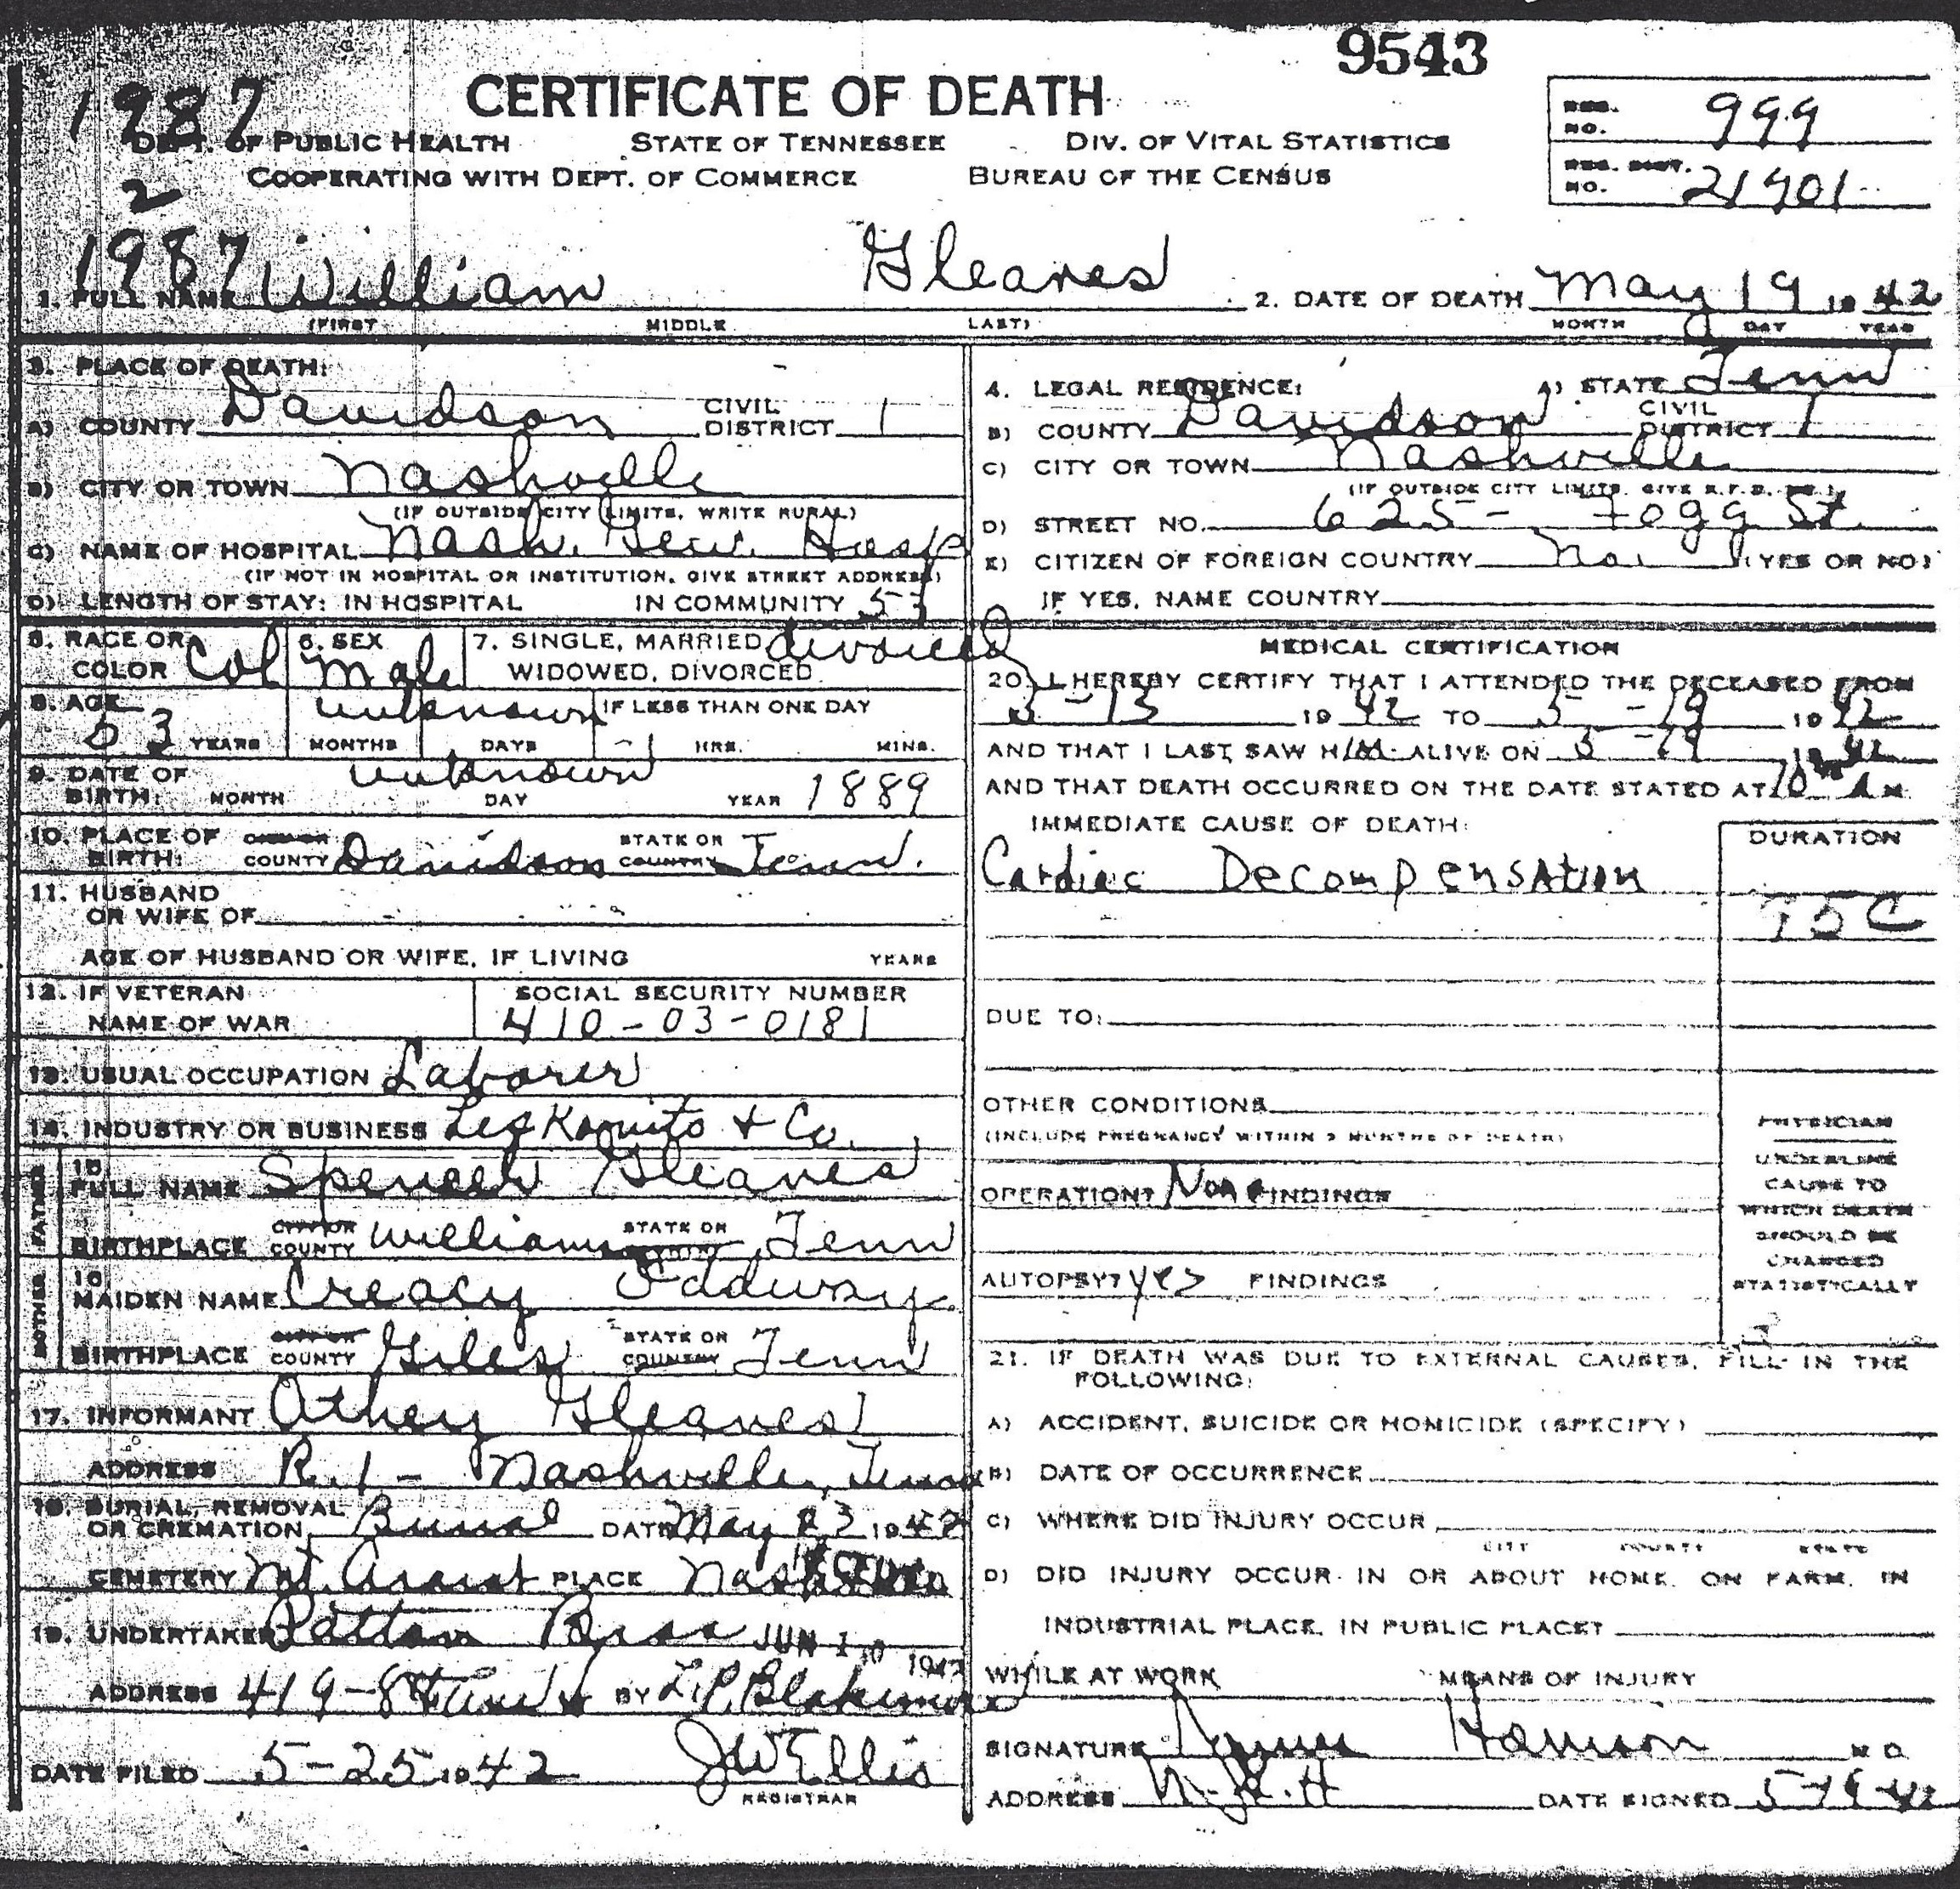 9543
CERTIFICATE OF DEATH
1987
DEPT. OF PUBLIC HEALTH STATE OF TENNESSEE DIV. OF VITAL STATISTICS
COOPERATING WITH DEPT. OF COMMERCE BUREAU OF THE CENSUS
REG. NO. 999
REG. DIST. NO. 21901
2
1987
1. FULL NAME William Gleaves 2. DATE OF DEATH May 19 19 42
(FIRST MIDDLE LAST) MONTH DAY YEAR
3. PLACE OF DEATH:
A) COUNTY Davidson CIVIL DISTRICT 1
B) CITY OR TOWN Nashville
(IF OUTSIDE CITY LIMITS, WRITE RURAL)
C) NAME OF HOSPITAL Nash. Gen. Hosp
(IF NOT IN HOSPITAL OR INSTITUTION, GIVE STREET ADDRESS)
D) LENGTH OF STAY: IN HOSPITAL IN COMMUNITY
4. LEGAL RESIDENCE: A) STATE Tenn
B) COUNTY Davidson CIVIL DISTRICT 1
C) CITY OR TOWN Nashville
(IF OUTSIDE CITY LIMITS, GIVE R.F.D. NO.)
D) STREET NO. 625 - Fogg St.
E) CITIZEN OF FOREIGN COUNTRY No (YES OR NO)
IF YES, NAME COUNTRY
5. RACE OR COLOR Col 6. SEX Male 7. SINGLE, MARRIED WIDOWED, DIVORCED divorced
8. AGE 53 YEARS MONTHS DAYS unknown IF LESS THAN ONE DAY HRS. MINS.
9. DATE OF BIRTH: MONTH DAY unknown YEAR 1889
10. PLACE OF BIRTH: CITY OR COUNTY Davidson STATE OR COUNTRY Tenn.
11. HUSBAND OR WIFE OF
AGE OF HUSBAND OR WIFE, IF LIVING YEARS
12. IF VETERAN NAME OF WAR SOCIAL SECURITY NUMBER
410-03-0181
13. USUAL OCCUPATION Laborer
14. INDUSTRY OR BUSINESS & Co.
FATHER
15. FULL NAME Spencer Gleaves
BIRTHPLACE CITY OR COUNTY Williamson STATE OR COUNTRY Tenn
MOTHER
16. MAIDEN NAME Creacy
BIRTHPLACE CITY OR COUNTY Giles STATE OR COUNTRY Tenn
17. INFORMANT Athey Gleaves
ADDRESS R. 1 - Nashville, Tenn
18. BURIAL, REMOVAL OR CREMATION Burial DATE May 23 19 42
CEMETERY Mt. Ararat PLACE
19. UNDERTAKER Patton Bros JUN 10 1942
ADDRESS 419-8th Ave BY L.P. Blakemore
DATE FILED 5-25 19 42 JW Ellis
REGISTRAR
MEDICAL CERTIFICATION
20. I HEREBY CERTIFY THAT I ATTENDED THE DECEASED FROM
19 42 TO 5-19 19 42
AND THAT I LAST SAW HIM ALIVE ON 5-19 19 42
AND THAT DEATH OCCURRED ON THE DATE STATED AT 10 A M
IMMEDIATE CAUSE OF DEATH: DURATION
Cardiac Decompensation
95C
DUE TO:
OTHER CONDITIONS
(INCLUDE PREGNANCY WITHIN 3 MONTHS OF DEATH)
OPERATION? None FINDINGS
AUTOPSY? yes FINDINGS
PHYSICIAN
UNDERLINE
CAUSE TO
WHICH DEATH
SHOULD BE
CHARGED
STATISTICALLY
21. IF DEATH WAS DUE TO EXTERNAL CAUSES, FILL IN THE
FOLLOWING:
A) ACCIDENT, SUICIDE OR HOMICIDE (SPECIFY)
B) DATE OF OCCURRENCE
C) WHERE DID INJURY OCCUR
CITY COUNTY STATE
D) DID INJURY OCCUR IN OR ABOUT HOME, ON FARM, IN
INDUSTRIAL PLACE, IN PUBLIC PLACE?
WHILE AT WORK MEANS OF INJURY
SIGNATURE Harrison M D
ADDRESS N.G.H DATE SIGNED 5-19-42